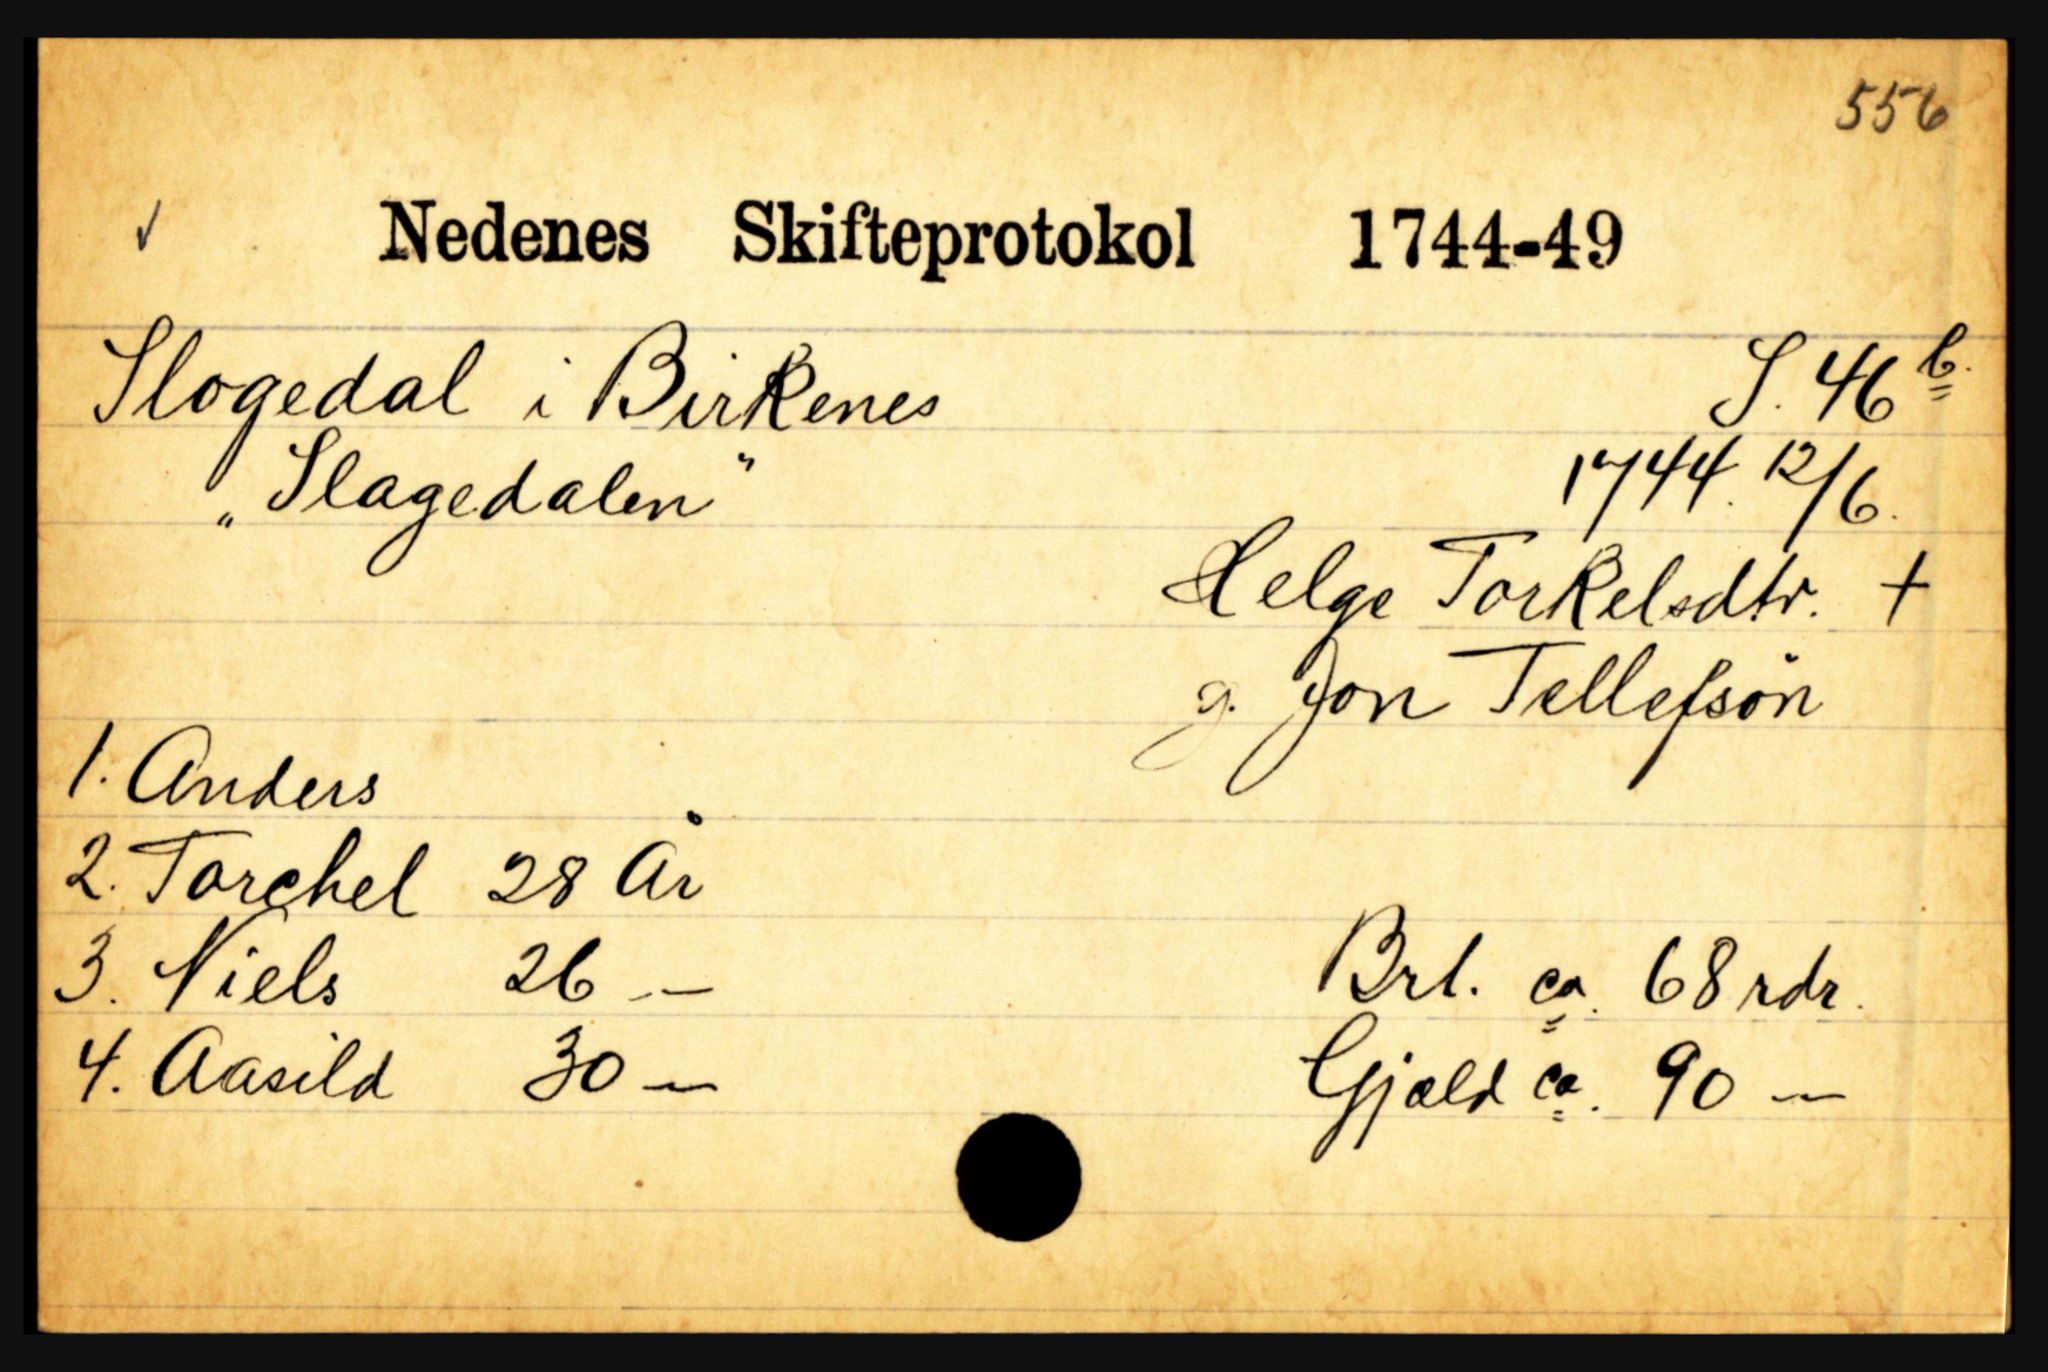 556
Nedenes Skifteprotokol 1744-49
Slogedal i Birkenes S. 46 b.
„Slagedalen" 1744. 12/6.
Helge Torkelsdtr. +
g. Jon Tellefsøn
1. Anders
2. Torchel 28 År
3. Niels 26 — Brt. ca. 68 rdr.
4. Aasild 30 — Gjæld ca. 90 —